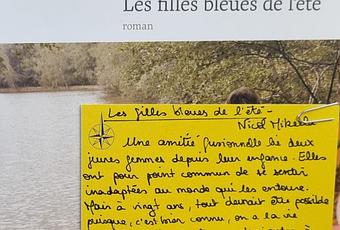 Les filles bleues de l'été
roman
Les filles bleues de l'été -
Une amitié fusionnelle lie deux
jeunes femmes depuis leur enfance. Elles
ont pour point commun de se sentir
inadaptées au monde qui les entoure.
Mais à vingt ans, tout devrait être possible
puisque, c'est bien connu, on a la vie